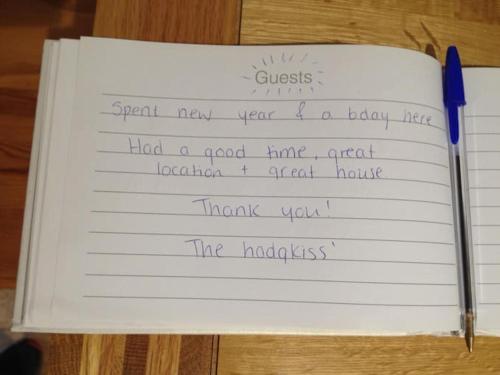 Guests
Spent new year & a bday here
Had a good time, great
location + great house
Thank you!
The hodgkiss'